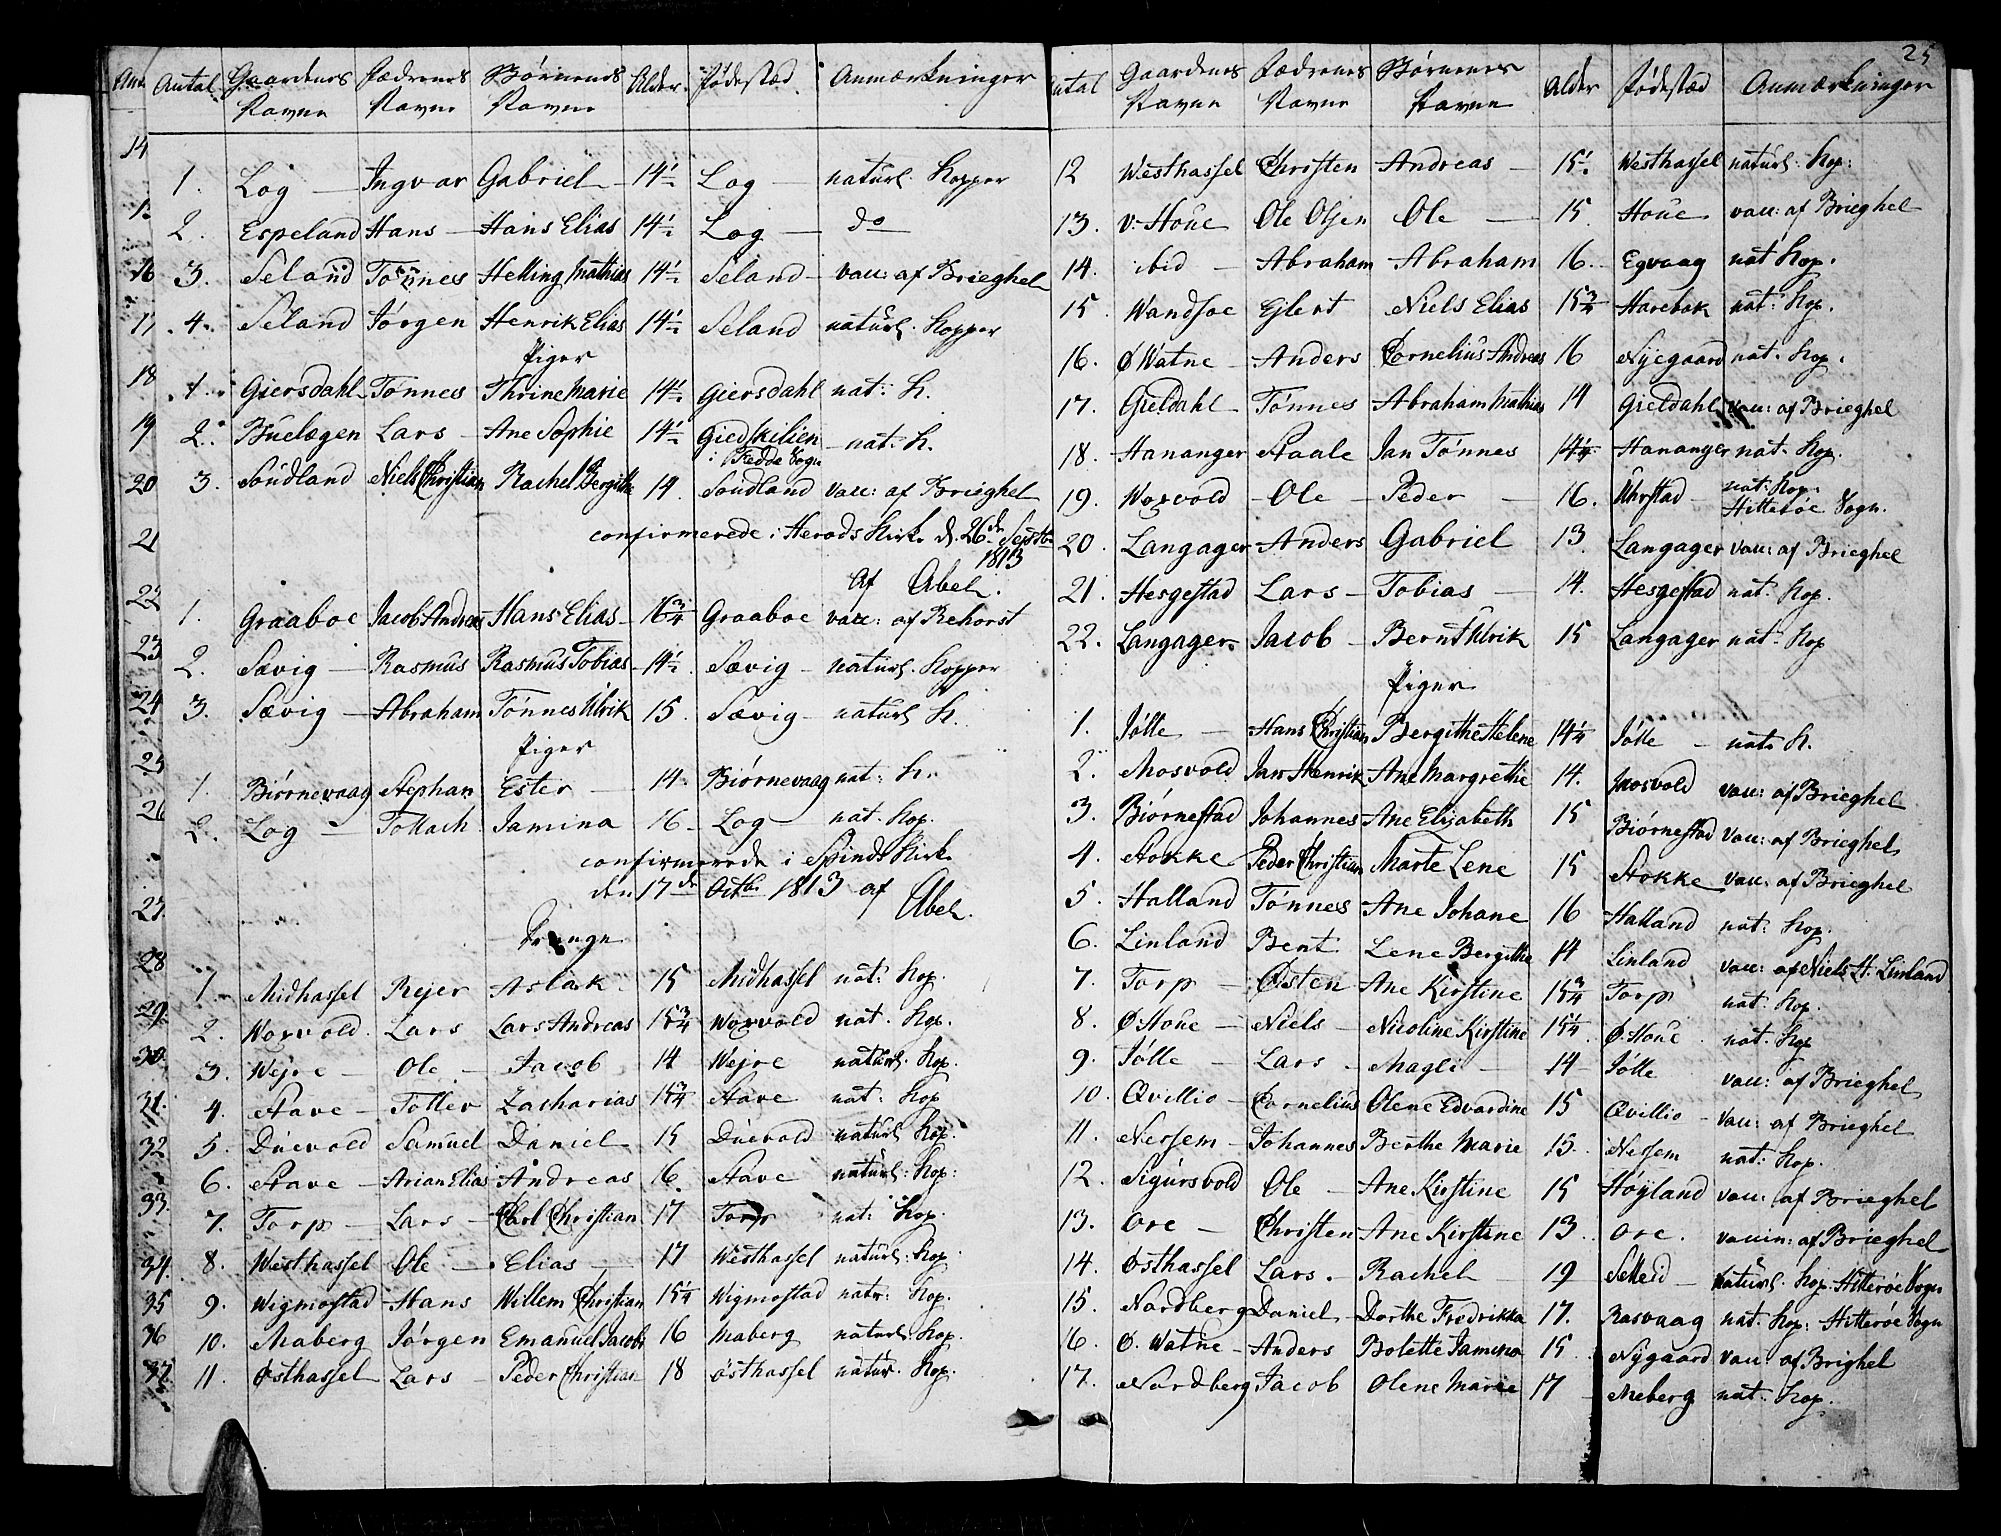 Antal Gaardenes Navne Fædrenes Navne Børnenes Navne Alder Fødested Anmærkninger
1. Log Ingvar Gabriel 14½ Log naturl. Kopper
2. Espeland Hans Hans Elias 14½ Log do
3. Seland Tønnes Helling Mathias 14½ Seland vacc: af Brieghel
4. Seland Jørgen Henrik Elias 14½ Seland naturl. Kopper
Piger
1. Giersdahl Tønnes Thrine Marie 14½ Giersdahl nat: K.
2. Buelægen Lars Ane Sophie 14½ Giedskilien i Fedde Sogn nat. K.
3. Sondland Niels Christian Rachel Bergithe 14 Sondland vacc: af Brieghel
confirmerede i Herads Kirke d. 26de Septbr 1813
af Abel.
1. Graaboe Jacob Andreas Hans Elias 16¾ Graaboe vacc: af Rehorst
2. Sævig Rasmus Rasmus Tobias 14½ Sævig naturl. Kopper
3. Sævig Abraham Tønnes Ulrik 15 Sævig naturl K.
Piger
1. Biørnevaag Stephan Ester 14 Biørnevaag nat: K.
2. Log Tollach Jamina 16 Log nat. Kop.
confirmerede i Spinds Kirke
den 17de Octbr 1813 af
Abel.
Drenge
1. Midhassel Rejer Aslak 15 Midhassel nat: Kop.
2. Woxvold Lars Lars Andreas 15¾ Woxvold nat. Kop.
3. Wejre Ole Jacob 14 Wejre naturl. Kop.
4. Stave Tollev Zacharias 15¾ Stave nat: Kop
5. Duevold Samuel Daniel 15 Duevold naturl Kop.
6. Stave Arian Elias Andreas 16 Stave naturl: Kop:
7. Torp Lars Carl Christian 17 Torp nat: Kop.
8. Westhassel Ole Elias 17 Westhassel naturl: Kop.
9. Wigmostad Hans Willem Christian 15¼ Wigmostad natr: Kop.
10. Maberg Jørgen Emanuel Jacob 16 Maberg naturl. Kop.
11. Østhassel Lars Peder Christian 18 Østhassel natur. Kop.
25
Antal Gaardenes Navne Fædrenes Navne Børnenes Navne Alder Fødested Anmærkninger
12 Westhassel Christen Andreas 15½ Westhassel naturl: Kop:
13. V: Houe Ole Olsen Ole 15 Houe vacc: af Brieghel
14. ibid Abraham Abraham 16. Egvaag nat Kop.
15. Wandsoe Ejlert Niels Elias 15¾ Harebak nat: Kop.
16. Ø Watne Anders Cornelius Andreas 16 Nyegaard nat. Kop.
17. Gieldahl Tønnes Abraham Mathias 14 Gieldahl vacc: af Brieghel
18. Hananger Staale Jan Tønnes 14¼ Hananger nat. Kop.
19. Woxvold Ole Peder 16. Uhrstad nat: Kop. Hitterøe Sogn.
20. Langager Anders Gabriel 13 Langager vacc: af Brieghel
21. Hesgestad Lars Tobias 14. Hesgestad nat. Kop.
22. Langager Jacob Bernt Ulrik 15 Langager nat. Kop
Piger
1. Jølle Hans Christian Bergithe Helene 14¼ Jølle nat. K.
2. Mosvold Jan Henrik Ane Margrethe 14. Mosvold vacc: af Brieghel
3. Biørnestad Johannes Ane Elisabeth 15 Biørnestad vacc: af Brieghel
4. Stokke Peder Christian Marte Lene 15 Stokke vacc: af Brieghel
5. Halland Tønnes Ane Johane 16 Halland nat. Kop.
6. Linland Bent Lene Bergithe 14 Linland vacc: af Niels H. Linland
7. Torp Østen Ane Kirstine 15¾ Torp nat. Kop.
8. Ø: Houe Niels Nicoline Kirstine 15¼ Ø: Houe nat. Kop
9. Jølle Lars Magli 14 Jølle vacc: af Brieghel
10. Qvillio Cornelius Olene Edvardine 15 Qvillio vacc: af Brieghel
11. Nessem Johannes Berthe Marie 15. Nessem nat: Kop.
12. Sigursvold Ole Ane Kirstine 15 Høyland vacc: af Brieghel
13. Ore Christen Ane Kirstine 13 Ore vaccin: af Brieghel
14. Østhassel Lars Rachel 19 naturl. Kop. Hitterøe Sogn
15. Nordberg Daniel Dorthe Fredrikka 17. Rasvaag nat. Kop: Hitterøe Sogn
16. Ø. Watne Anders Bolette Jamina 15 Nygaard vacc: af Brighel
17. Nordberg Jacob Olene Marie 17 Meberg nat. Kop.